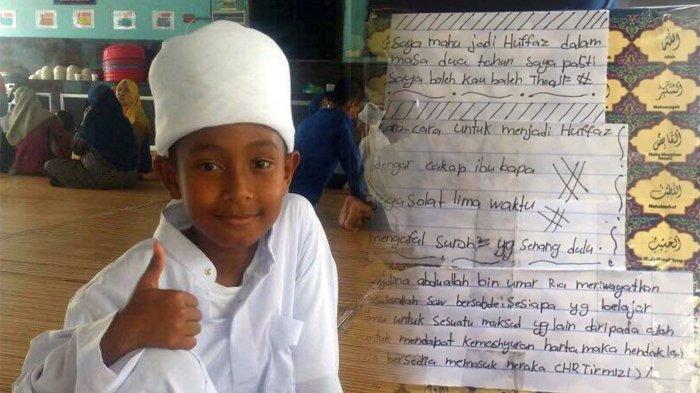 Saya mahu jadi Huffaz dalam
masa dua tahun Saya pasti
Saya boleh Kau boleh Thaqif #
cara-cara untuk menjadi Huffaz
dengar cakap ibu bapa
jaga Solat lima waktu
mengafal Surah2 yg Senang dulu.
abdualah bin umar Ria meriwayatkan
saw bersabde: Sesiapa yg belajar
untuk Sesuatu maksud yg lain daripada alah
untuk mendapat kemeshyuran harta maka hendaklah
bersedia memasuk neraka (HR Tirmizi)!
الله
Allah
القابض